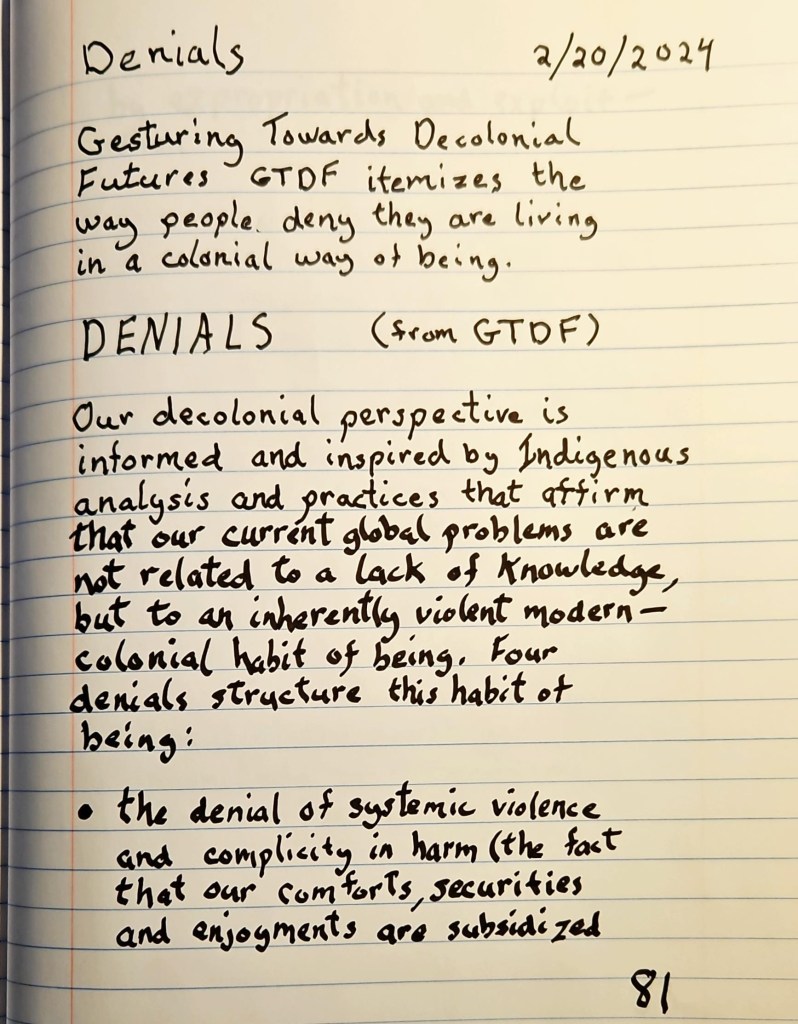 Denials 2/20/2024
Gesturing Towards Decolonial
Futures GTDF itemizes the
way people deny they are living
in a colonial way of being.
DENIALS (from GTDF)
Our decolonial perspective is
informed and inspired by Indigenous
analysis and practices that affirm
that our current global problems are
not related to a lack of knowledge,
but to an inherently violent modern-
colonial habit of being. Four
denials structure this habit of
being:
• the denial of systemic violence
and complicity in harm (the fact
that our comforts, securities
and enjoyments are subsidized
81